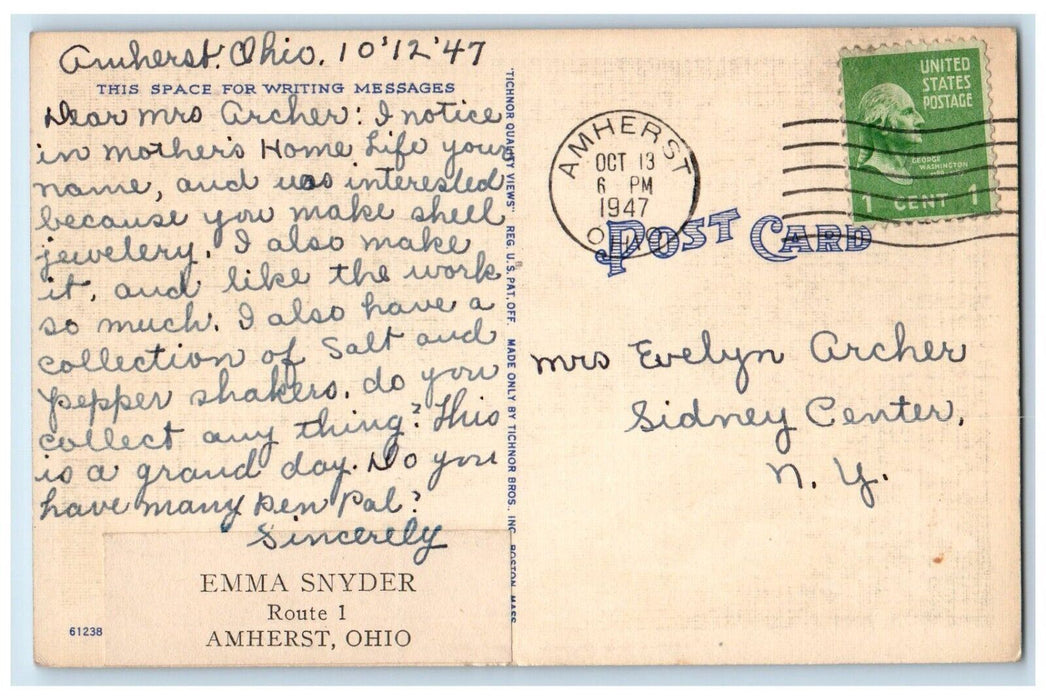 Amherst. Ohio. 10'12'47
THIS SPACE FOR WRITING MESSAGES
Dear Mrs Archer: I notice
in mother's Home Life your
name, and was interested
because you make shell
jewelery. I also make
it, and like the work
so much. I also have a
collection of Salt and
pepper shakers. do you
collect any thing? This
is a grand day. Do you
have many Pen Pal?
Sincerely
EMMA SNYDER
Route 1
AMHERST, OHIO
61238
"TICHNOR QUALITY VIEWS" REG. U.S. PAT. OFF. MADE ONLY BY TICHNOR BROS., INC. BOSTON, MASS.
AMHERST
OCT 13
6 PM
1947
OHIO
UNITED
STATES
POSTAGE
GEORGE
WASHINGTON
1 CENT 1
POST CARD
Mrs Evelyn Archer
Sidney Center,
N. Y.